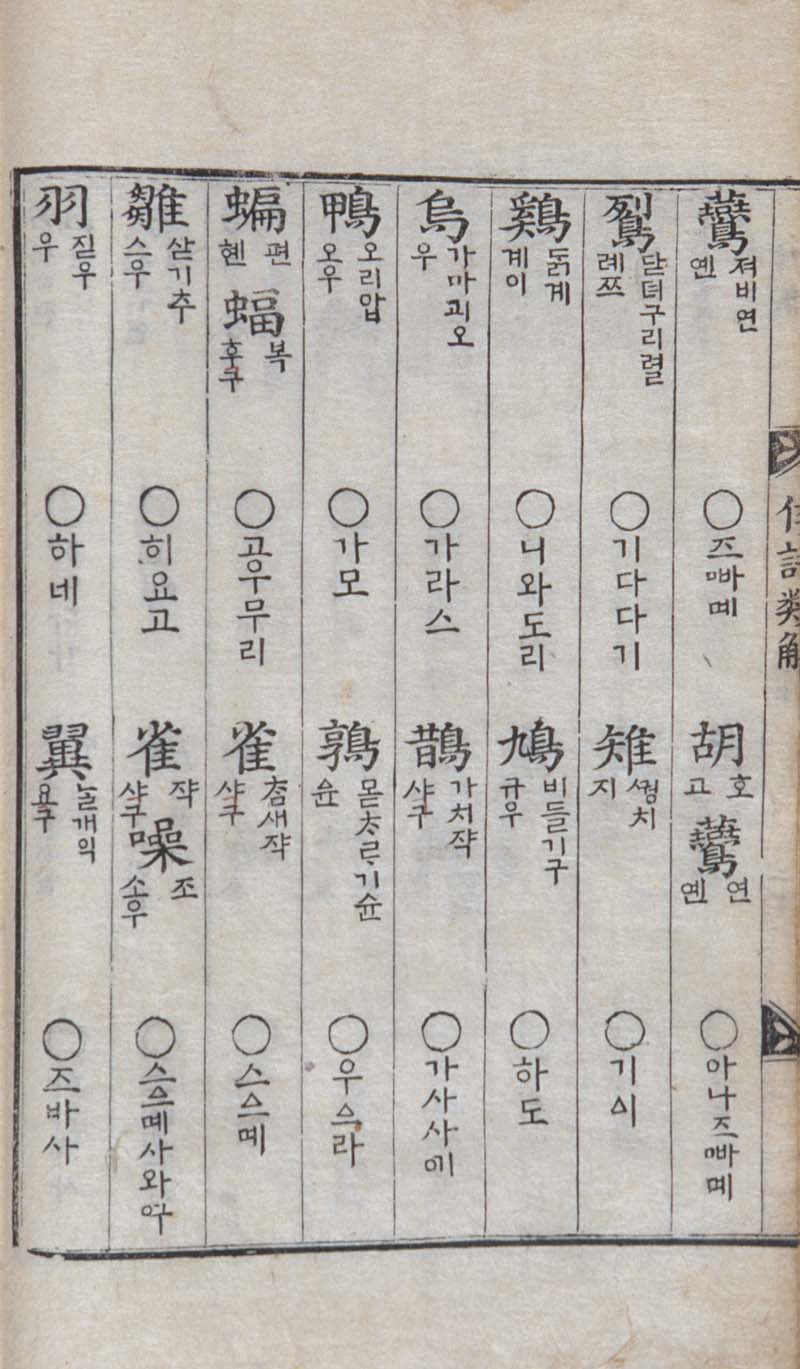 鷰 져비연 옌 ○즈빠몌 胡 호 고 鷰 연 옌 ○아나즈빠몌
鴷 닫뎌구리렬 례쯔 ○기다다기 雉 ᄭᅯᆼ치 지 ○기시
鷄 ᄃᆞᆰ계 계이 ○니와도리 鳩 비들기구 규우 ○하도
烏 가마괴오 우 ○가라스 鵲 가치쟉 샤구 ○가사사ᅋᅵ
鴨 오리압 오우 ○가모 鶉 몯ᄎᆞ라기슌 슌 ○우ᅀᅳ라
蝙 편 헨 蝠 복 후구 ○고우무리 雀 ᄎᆞᆷ새쟉 샤구 ○스ᅀᅳ몌
雛 삳기추 스우 ○히요고 雀 쟉 샤구 噪 조 소우 ○스ᅀᅳ몌사와
羽 짇우 우 ○하네 翼 ᄂᆞᆯ개익 요구 ○즈바사